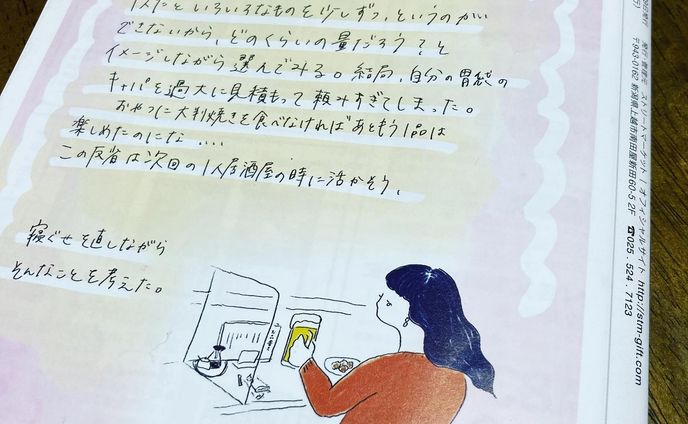 1人だといろいろなものを少しずつ、というのが
できないから、どのくらいの量だろう？と
イメージしながら選んでみる。結局、自分の胃袋の
キャパを過大に見積もって頼みすぎてしまった。
おやつに大判焼きを食べなければあともう1品は
楽しめたのにな....
この反省は次回の1人居酒屋の時に活かそう。
寝ぐせを直しながら
そんなことを考えた。
ストリートマーケット | オフィシャルサイト http://stm-gift.com
〒943-0162 新潟県上越市南田屋新田60-5 2F ☎025.524.7123